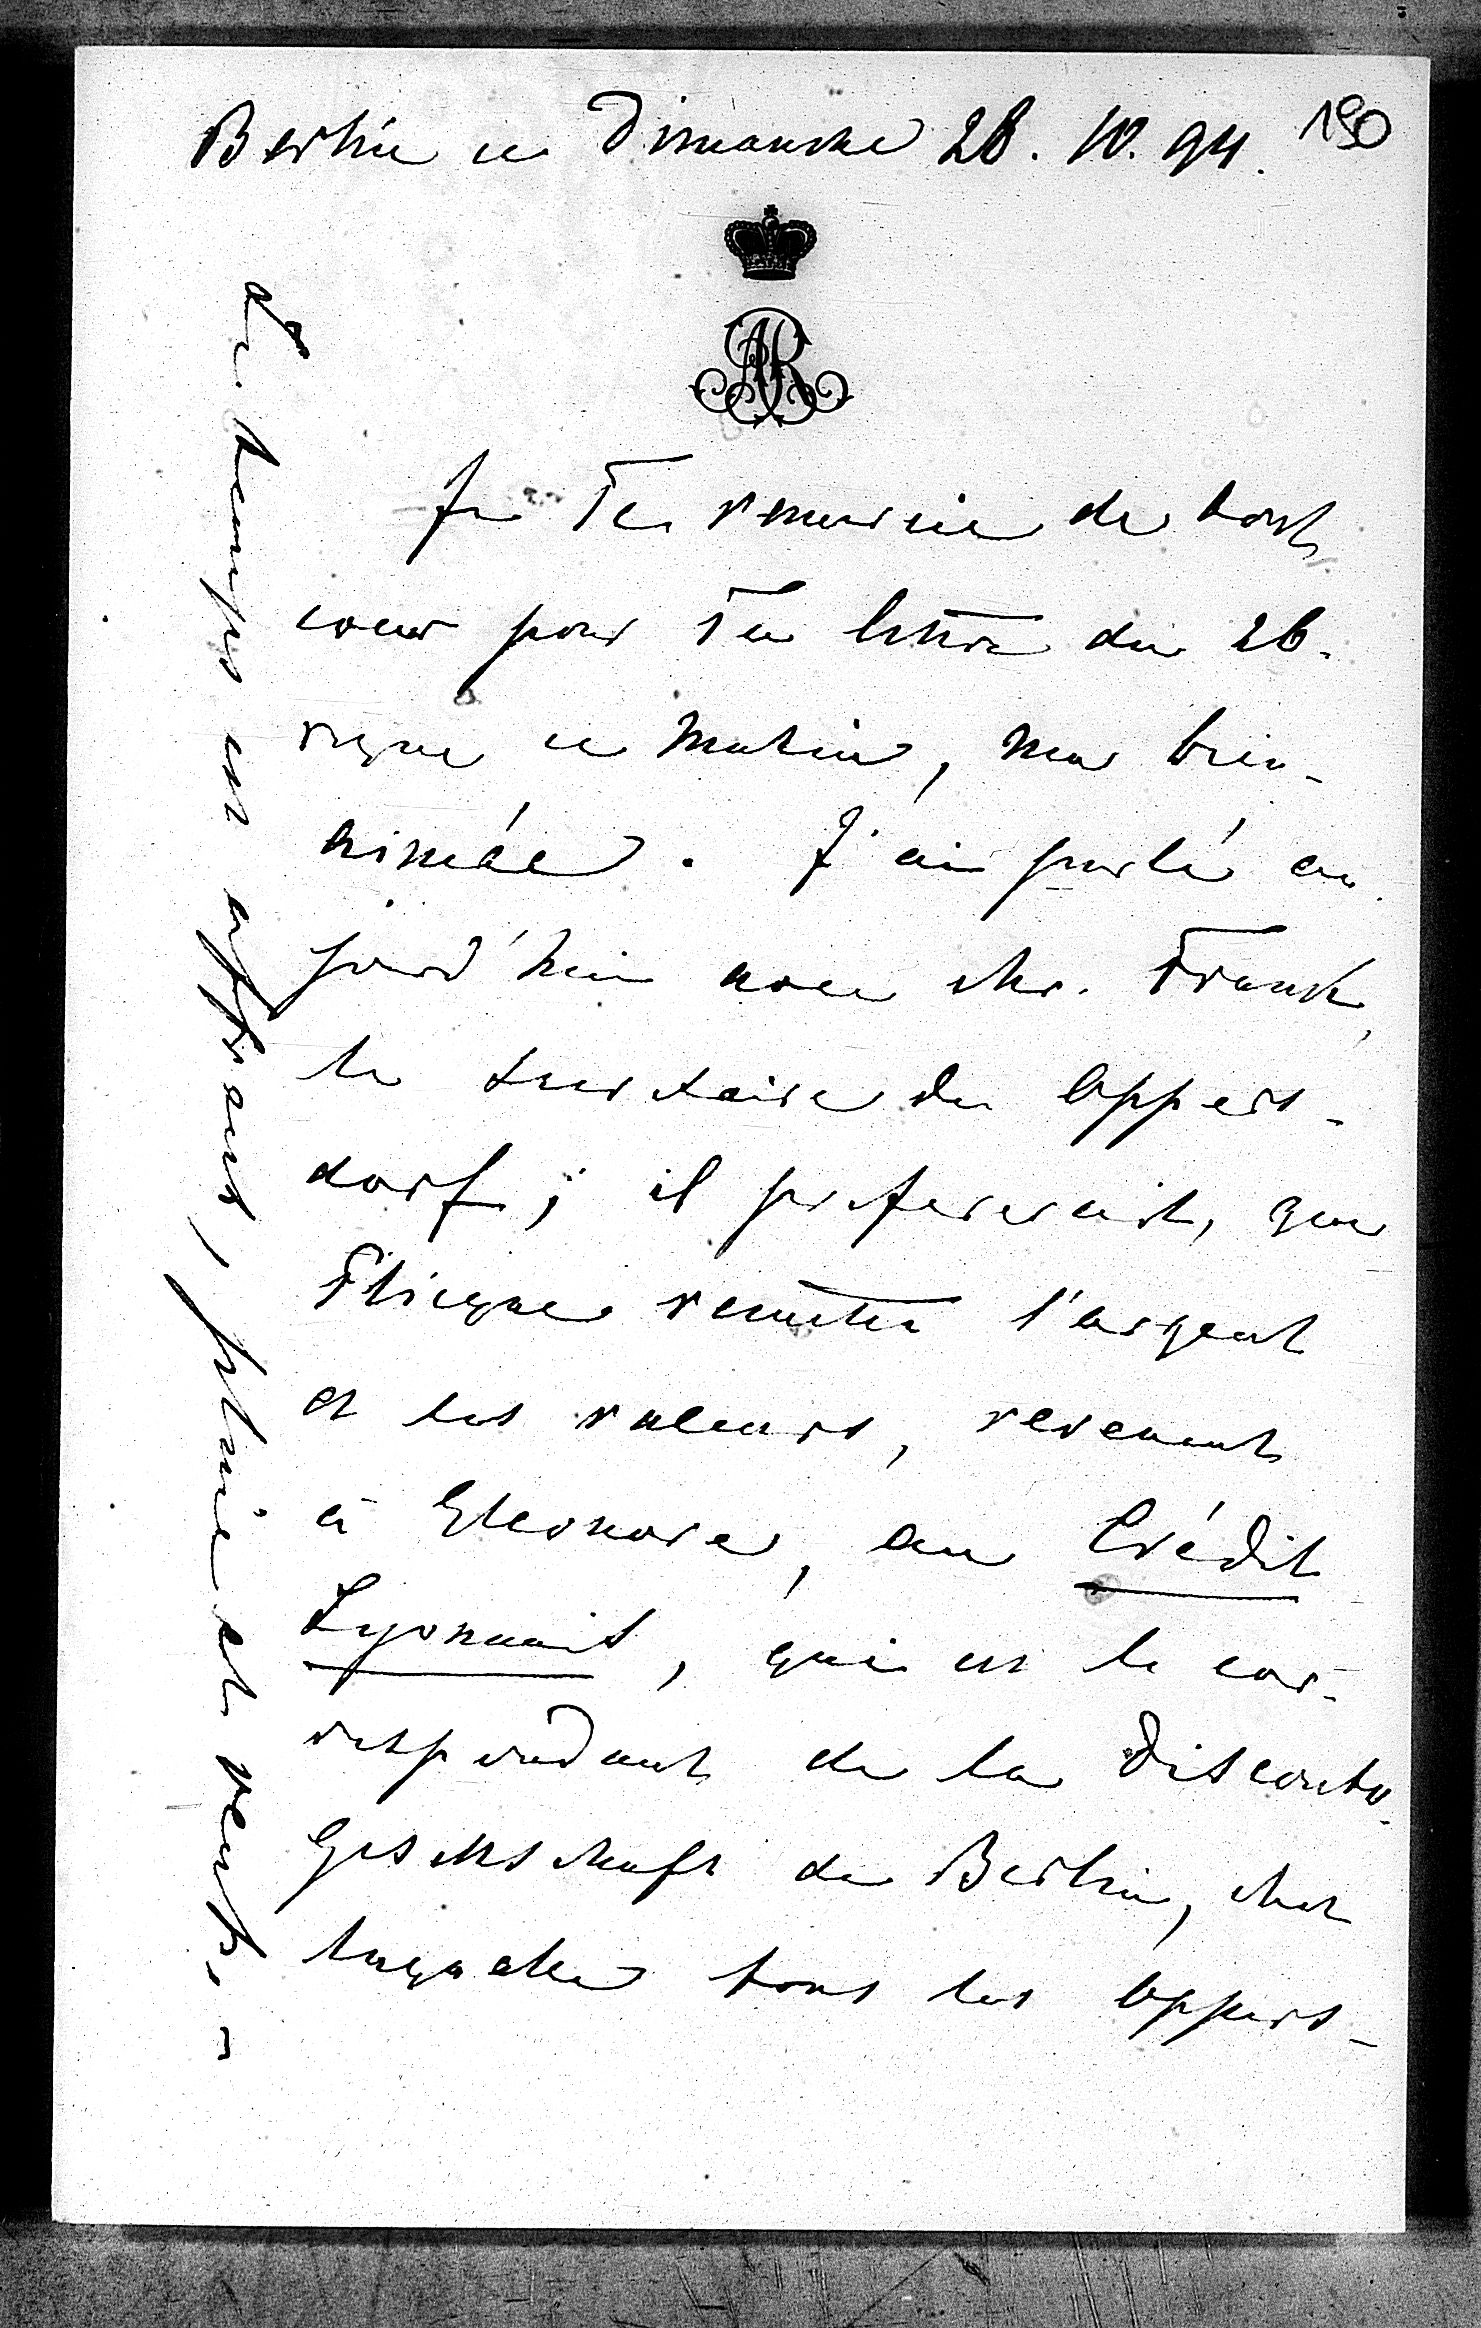 Berlin ce Dimanche 28. 10. 94.
190
AR
Je Te remercie de tout
coeur pour Ta lettre du 26.
reçue ce matin, ma bien-
aimée. J'ai parlé au
jourd'hui avec Mr. Frank,
le secretaire des Oppers-
dorf; il prefererait, que
Flieque remette l'argent
et les valeurs, revenant
à Eleonore, au Crédit
Lyonnais, qui est le cor-
respondant de la Disconto-
Gesellschaft de Berlin, chez
laquelle tous les Oppers-
Le temps est affreux, pluie et vent. -